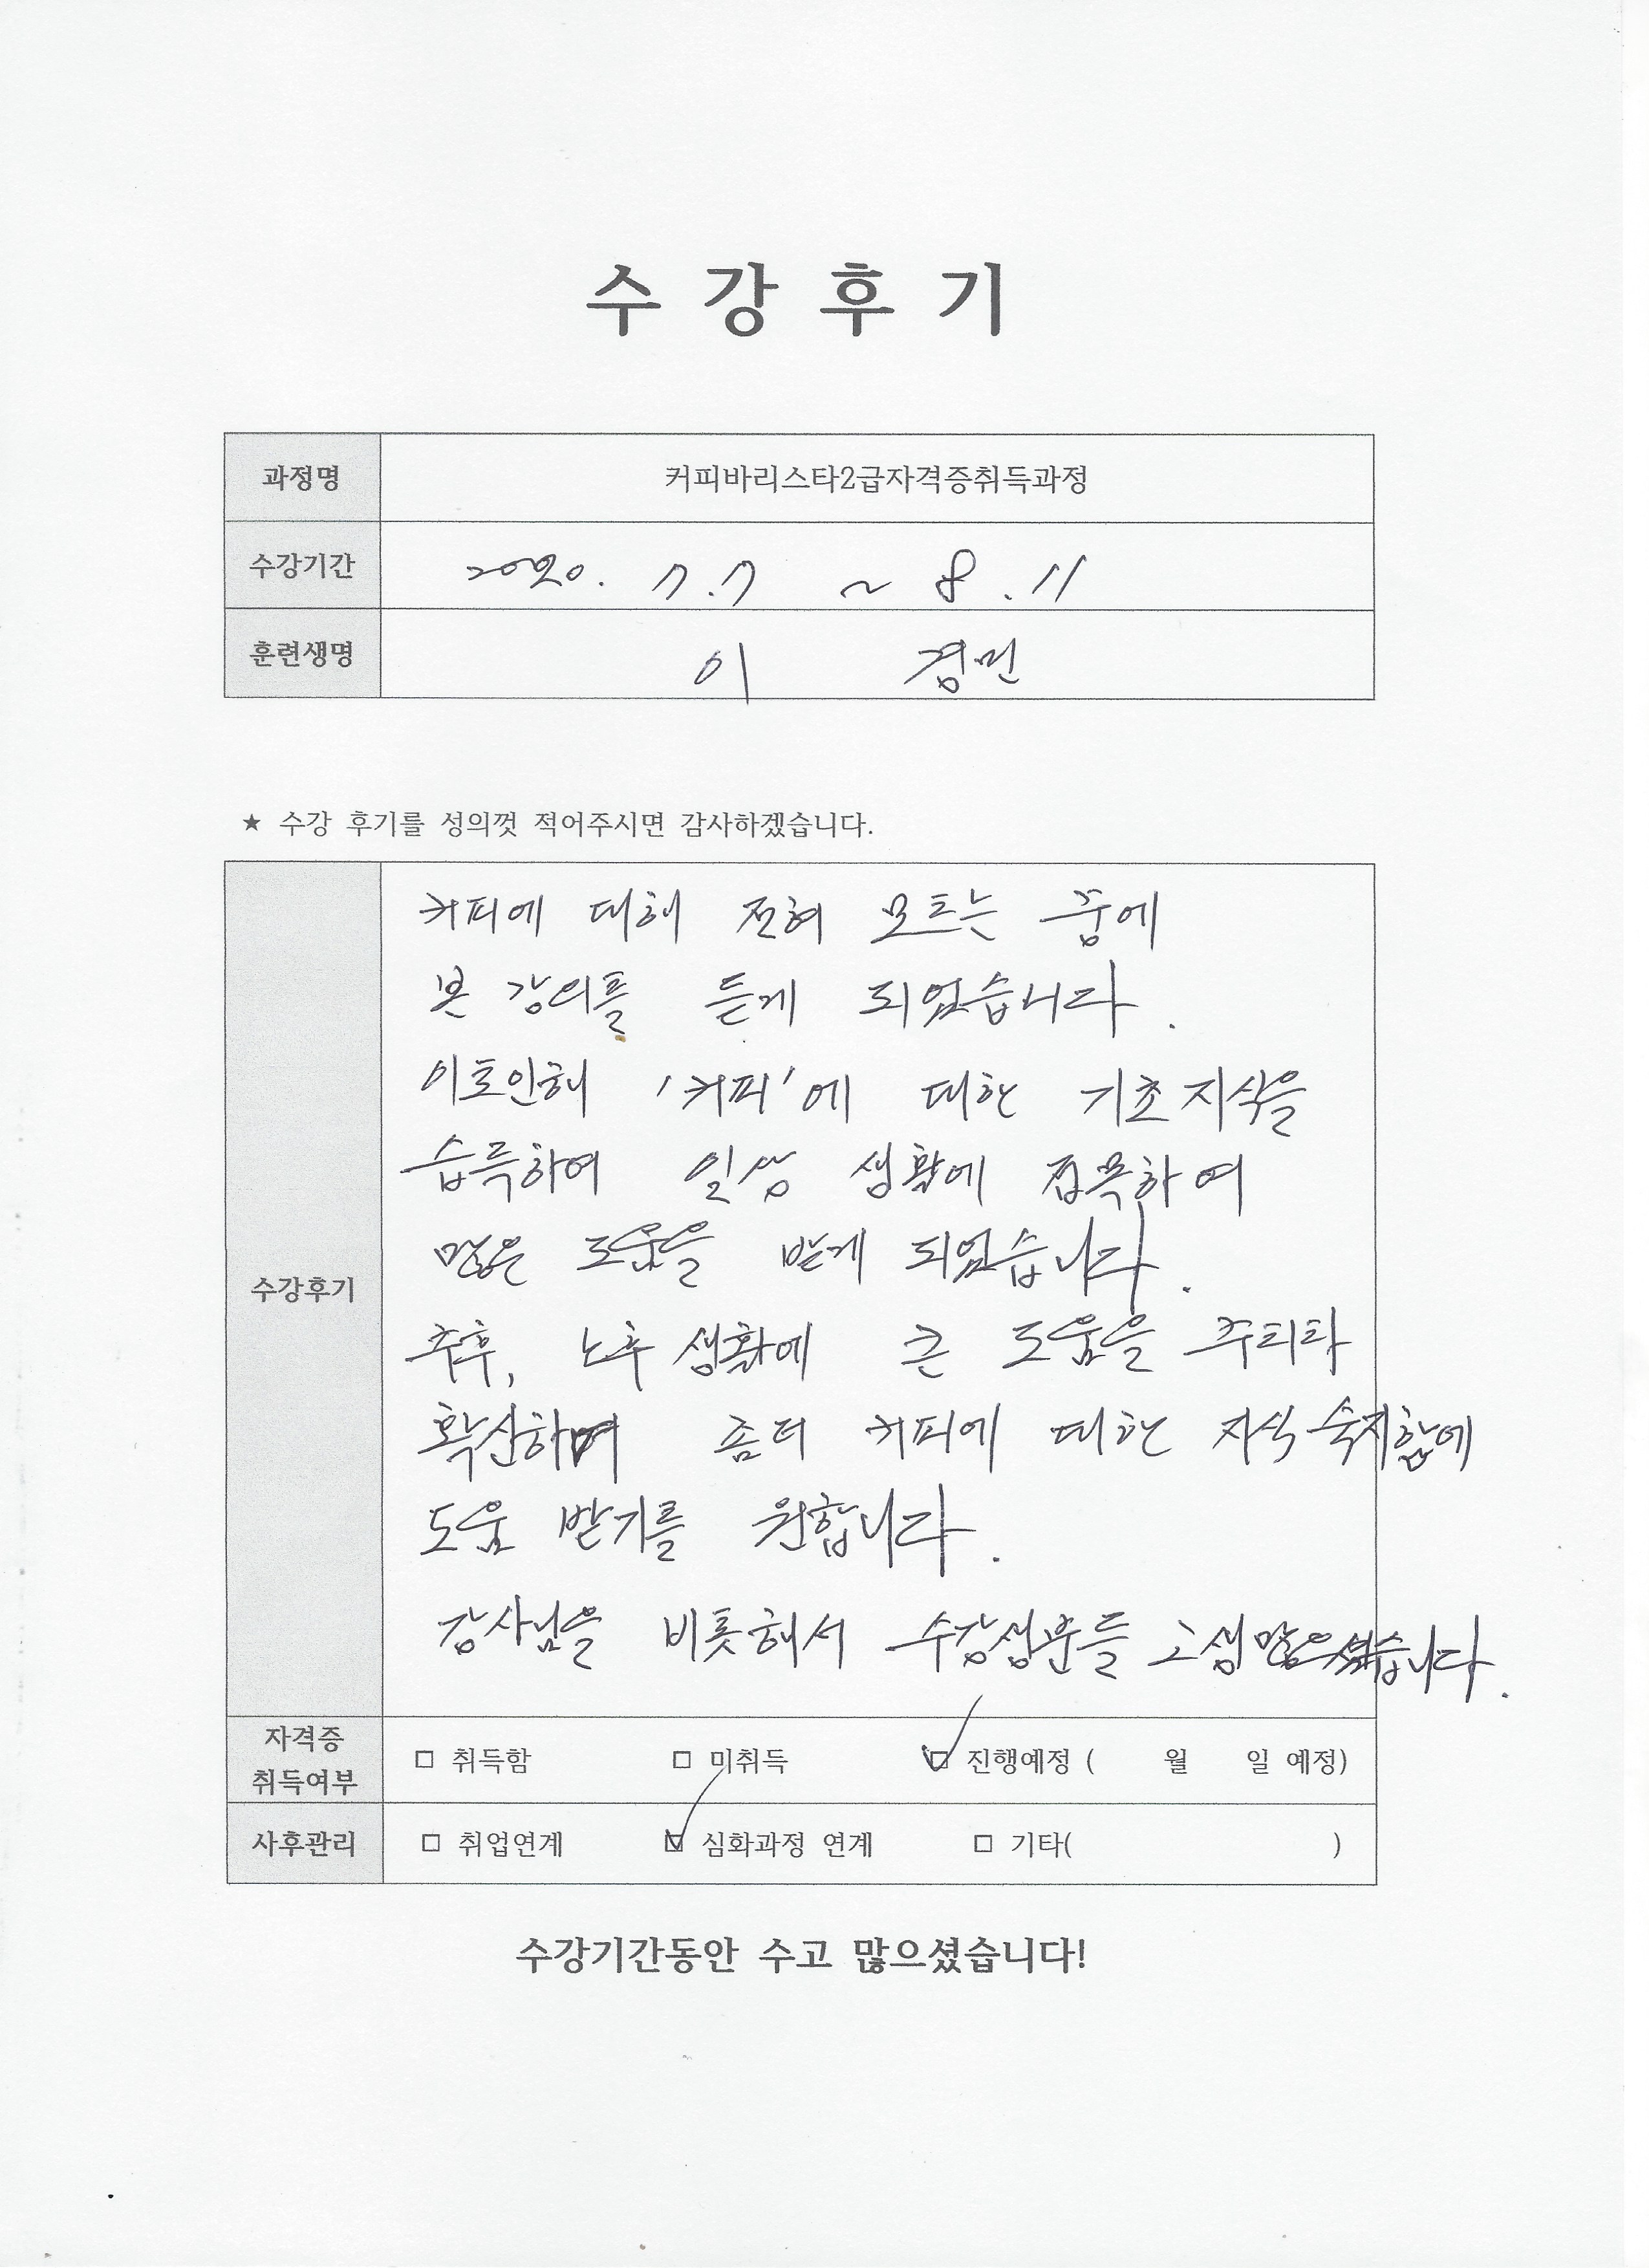 수 강 후 기
과정명 커피바리스타2급자격증취득과정
수강기간 2020. 7.7 ~ 8.11
훈련생명 이 경민
★ 수강 후기를 성의껏 적어주시면 감사하겠습니다.
커피에 대해 전혀 모르는 중에
본 강의를 듣게 되었습니다.
이로인해 '커피'에 대한 기초지식을
습득하여 일상 생활에 접목하여
많은 도움을 받게 되었습니다.
수강후기
추후, 노후생활에 큰 도움을 주리라
확신하며 좀더 커피에 대한 지식 숙지함에
도움 받기를 원합니다.
강사님을 비롯해서 수강생분들 고생많으셨습니다.
자격증 취득여부 □ 취득함 □ 미취득 ☑ 진행예정 ( 월 일 예정)
사후관리 □ 취업연계 ☑ 심화과정 연계 □ 기타( )
수강기간동안 수고 많으셨습니다!